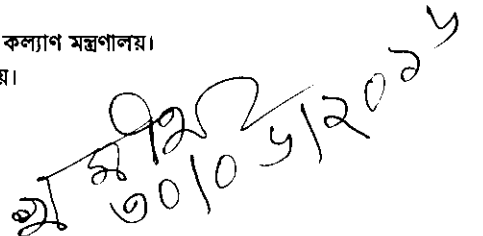 কল্যাণ মন্ত্রণালয়।
য়।
৩০/০৬/২০১৬